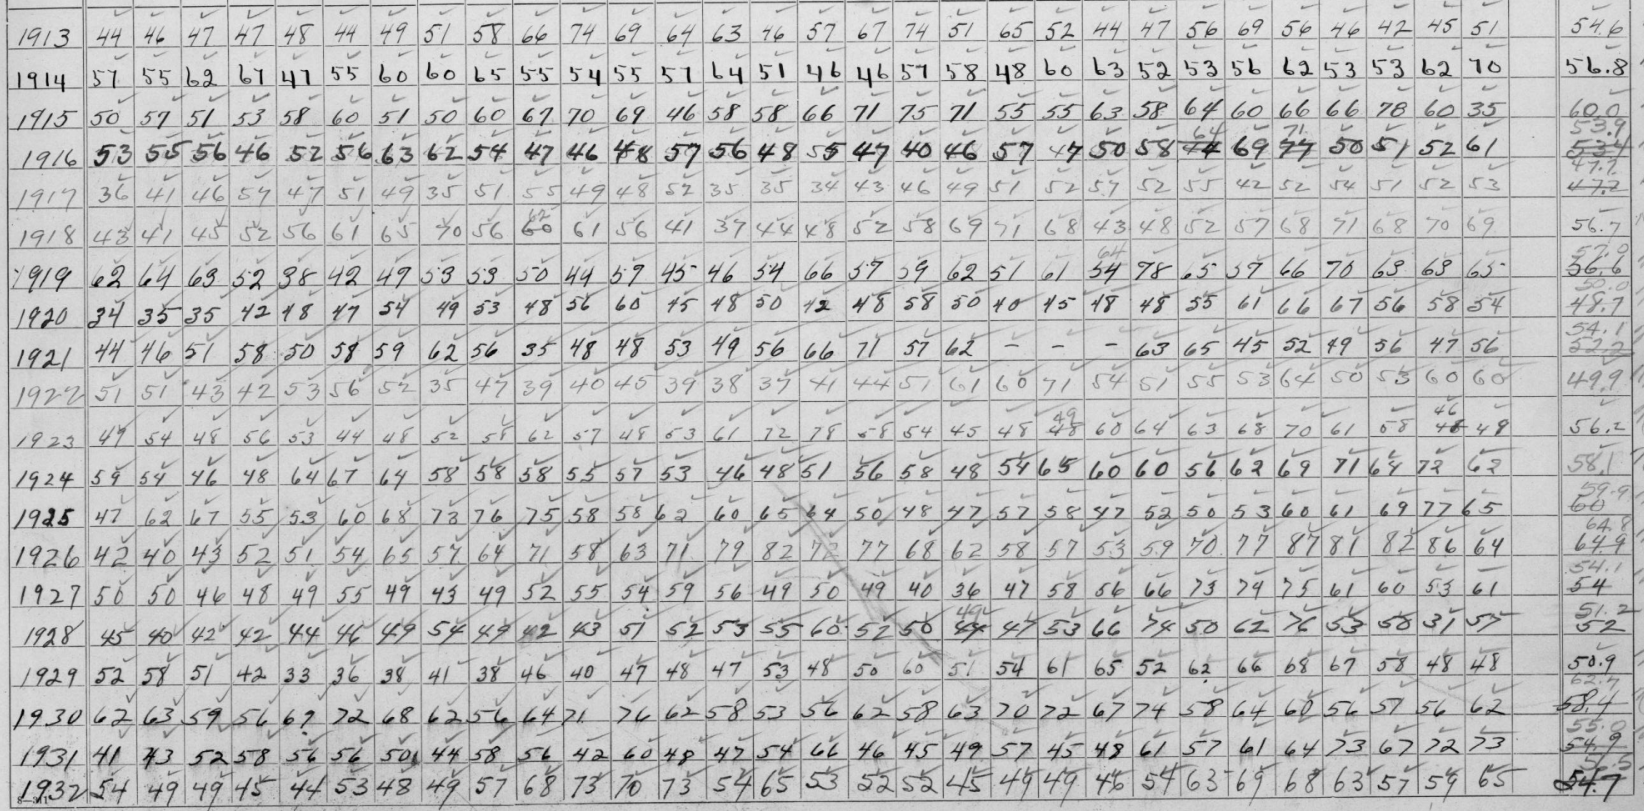 1913 44 46 47 47 48 44 49 51 58 66 74 69 64 63 46 57 67 74 51 65 52 44 47 56 69 56 46 42 45 51 54.6
1914 57 55 62 67 47 55 60 60 65 55 54 55 57 64 51 46 46 57 58 48 60 63 52 53 56 62 53 53 62 70 56.8
1915 50 57 51 53 58 60 51 50 60 67 70 69 46 58 58 66 71 75 71 55 55 63 58 64 60 66 66 78 60 35 60.0
64 71 53.9
1916 53 55 56 46 52 56 63 62 54 47 46 48 57 56 48 55 47 40 46 57 47 50 58 69 77 50 51 52 61 53.4
47.7
1917 36 41 46 57 47 51 49 35 51 55 49 48 52 35 35 34 43 46 49 51 52 57 52 55 42 52 54 51 52 53 47.2
62
1918 43 41 45 52 56 61 65 70 56 60 61 56 41 37 44 48 52 58 69 71 68 43 48 52 57 68 71 68 70 69 56.7
64 57.0
1919 62 64 63 52 38 42 49 53 53 50 44 59 45 46 54 66 57 59 62 51 61 54 78 65 57 66 70 63 63 65 56.6
50.0
1920 34 35 35 42 48 47 54 49 53 48 56 60 45 48 50 42 48 58 50 40 45 48 48 55 61 66 67 56 58 54 48.7
54.1
1921 44 46 51 58 50 58 59 62 56 35 48 48 53 49 56 66 71 57 62 - - - 63 65 45 52 49 56 47 56 52.2
1922 51 51 43 42 53 56 52 35 47 39 40 45 39 38 37 41 44 51 61 60 71 54 51 55 53 64 50 53 60 60 49.9
49 46
1923 47 54 48 56 53 44 48 52 58 62 57 48 53 61 72 78 58 54 45 48 48 60 64 63 68 70 61 58 48 49 56.2
1924 59 54 46 48 64 67 64 58 58 58 55 57 53 46 48 51 56 58 48 54 65 60 60 56 62 69 71 64 72 62 58.1
59.9
1925 47 62 67 55 53 60 68 73 76 75 58 58 62 60 65 64 50 48 47 57 58 47 52 50 53 60 61 69 77 65 60
64.8
1926 42 40 43 52 51 54 65 57 64 71 58 63 71 79 82 72 77 68 62 58 57 53 59 70 77 87 81 82 86 64 64.9
54.1
1927 50 50 46 48 49 55 49 43 49 52 55 54 59 56 49 50 49 40 36 47 58 56 66 73 79 75 61 60 53 61 54
49 51.2
1928 45 40 42 42 44 46 49 54 49 42 43 51 52 53 55 60 52 50 44 47 53 66 74 50 62 76 53 58 31 57 52
1929 52 58 51 42 33 36 38 41 38 46 40 47 48 47 53 48 50 60 51 54 61 65 52 62 66 68 67 58 48 48 50.9
62.7
1930 62 63 59 56 67 72 68 62 56 64 71 76 62 58 53 56 62 58 63 70 72 67 74 58 64 60 56 57 56 62 58.4
55.0
1931 41 43 52 58 56 56 50 44 58 56 42 60 48 47 54 66 46 45 49 57 45 48 61 57 61 64 73 67 72 73 54.9
1932 54 49 49 45 44 53 48 49 57 68 73 70 73 54 65 53 52 52 45 49 49 46 54 63 69 68 63 57 59 65 54.7